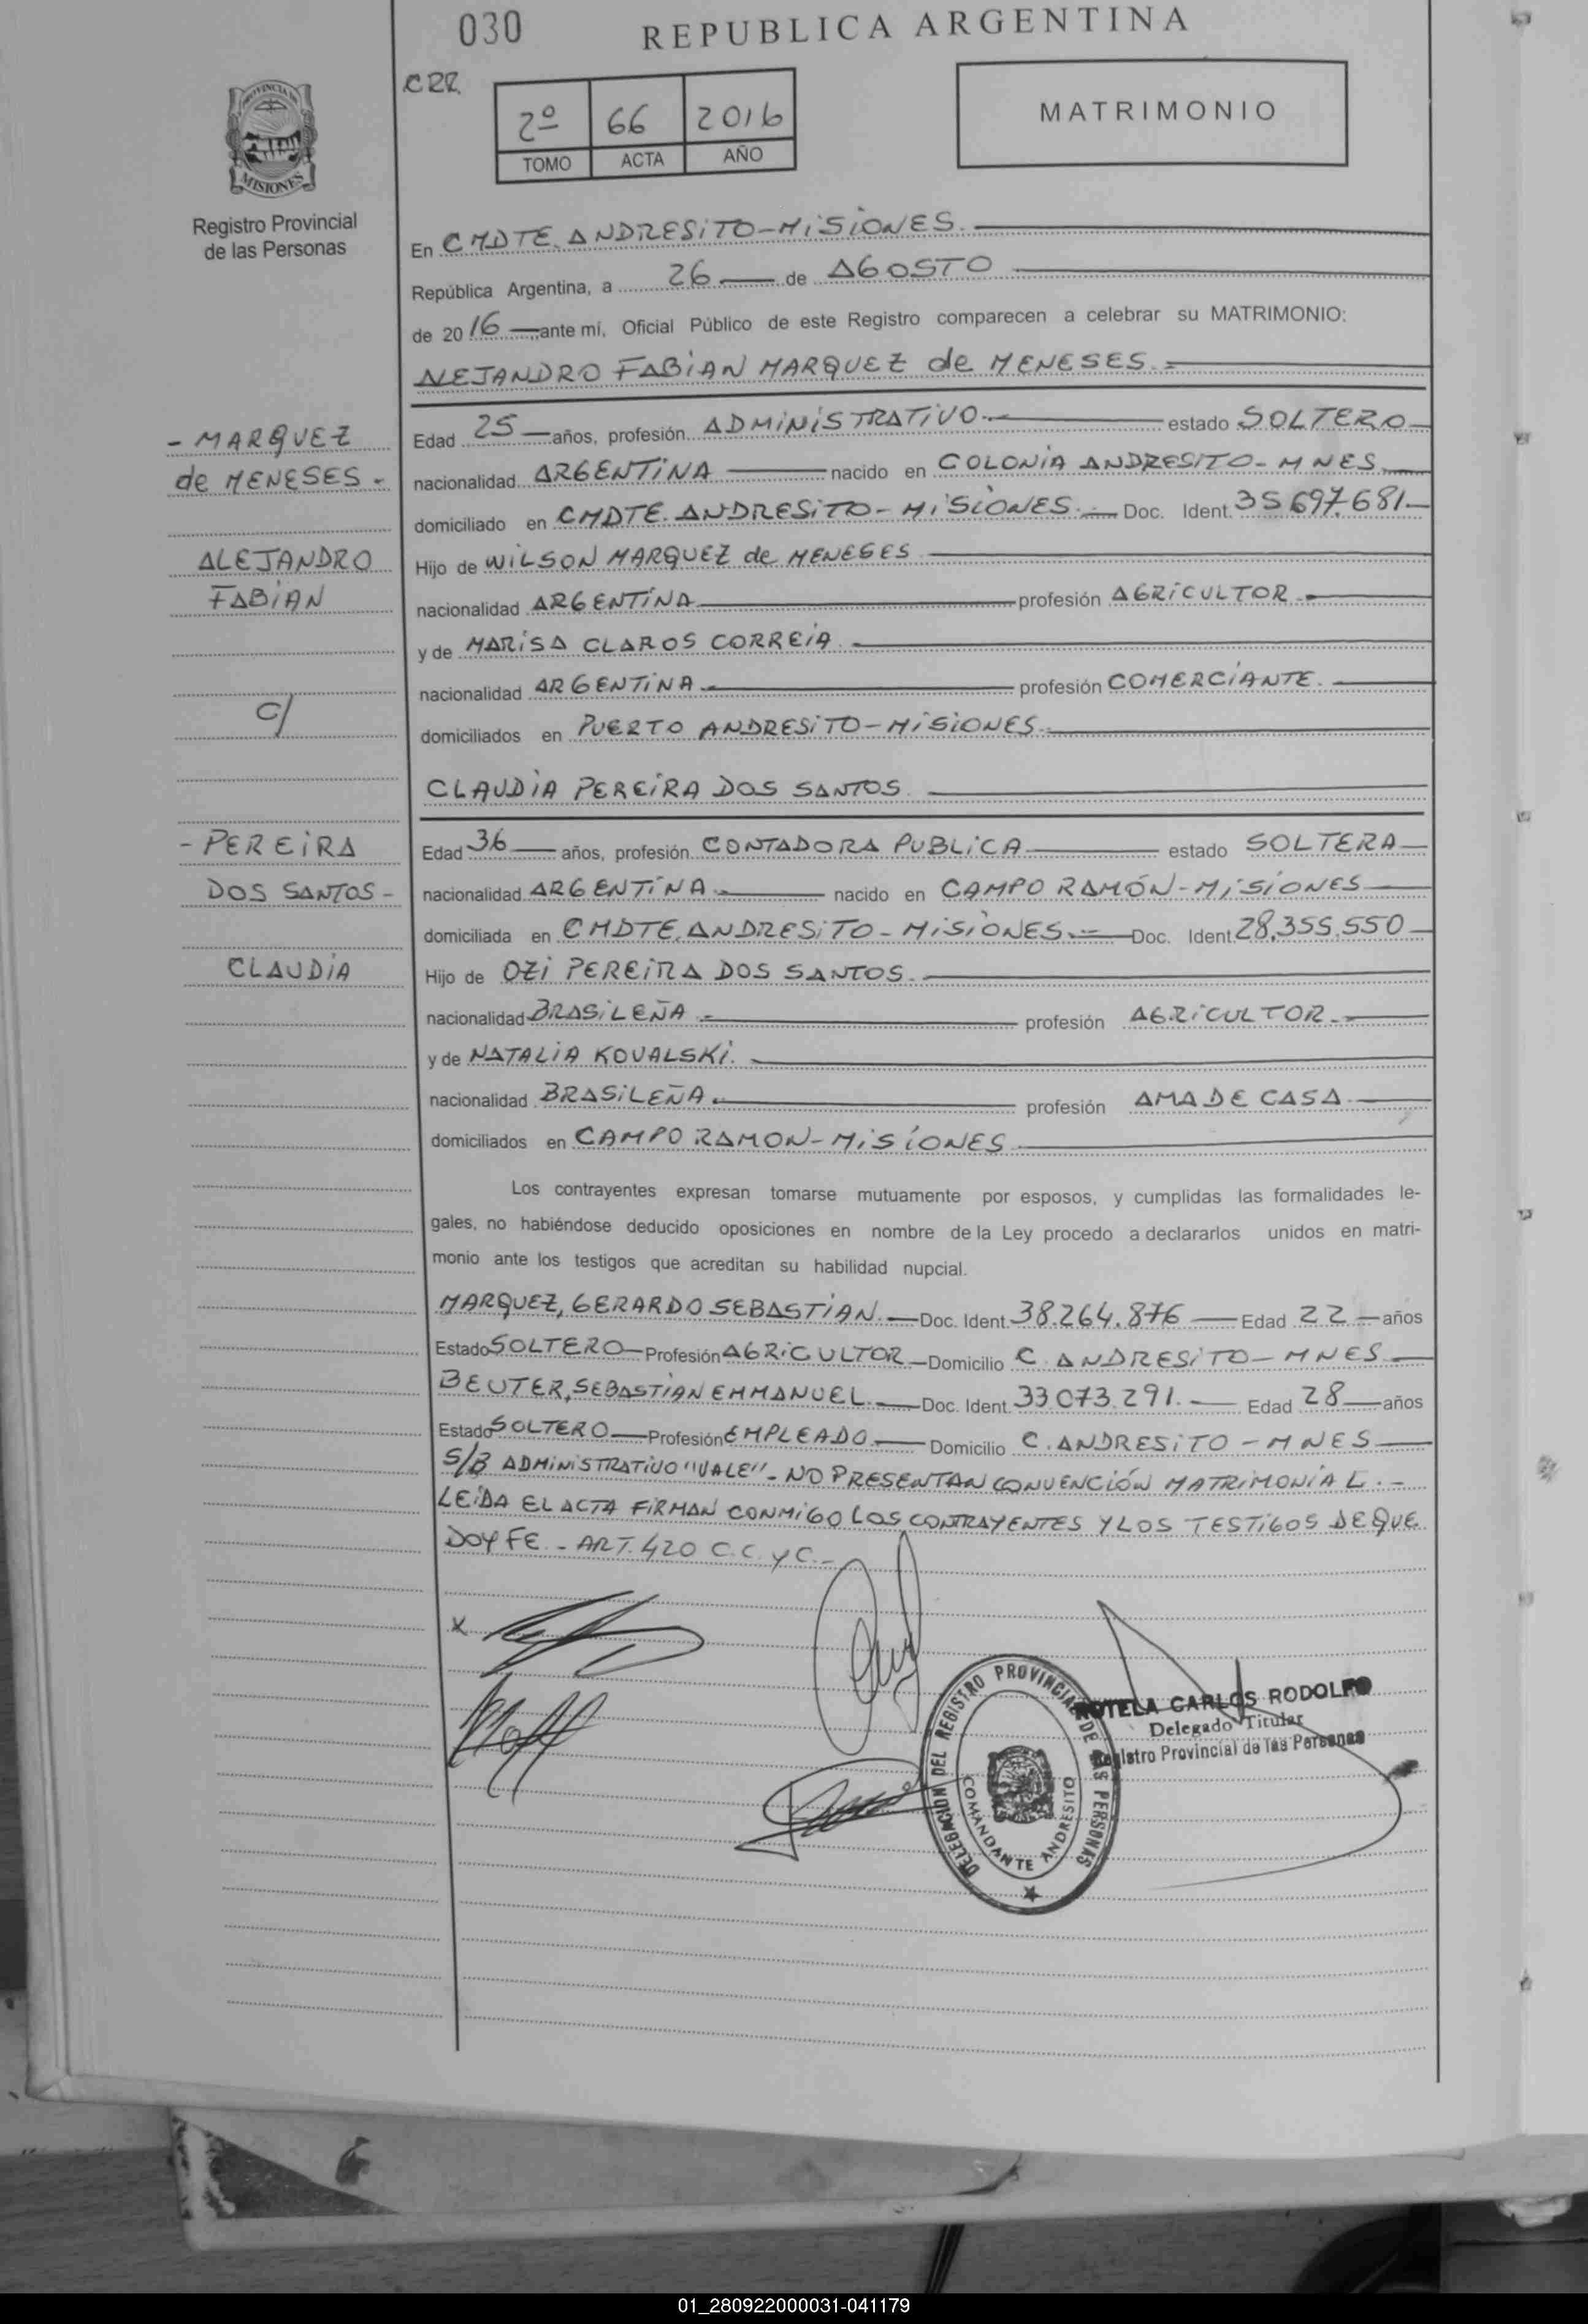 030
REPUBLICA ARGENTINA
CRR.
2º 66 2016
TOMO ACTA AÑO
MATRIMONIO
MISIONES
Registro Provincial
de las Personas
En CMDTE. ANDRESITO-MISIONES.
República Argentina, a 26 de AGOSTO
de 2016 ante mí, Oficial Público de este Registro comparecen a celebrar su MATRIMONIO:
ALEJANDRO FABIAN MARQUEZ de MENESES.
- MARQUEZ
de MENESES -
ALEJANDRO
FABIAN
c/
- PEREIRA
DOS SANTOS -
CLAUDIA
Edad 25 años, profesión ADMINISTRATIVO. estado SOLTERO
nacionalidad ARGENTINA nacido en COLONIA ANDRESITO- MNES.
domiciliado en CMDTE. ANDRESITO- MISIONES. Doc. Ident. 35697.681
Hijo de WILSON MARQUEZ de MENESES
nacionalidad ARGENTINA profesión AGRICULTOR.
y de MARISA CLAROS CORREIA.
nacionalidad ARGENTINA. profesión COMERCIANTE.
domiciliados en PUERTO ANDRESITO-MISIONES.
CLAUDIA PEREIRA DOS SANTOS.
Edad 36 años, profesión CONTADORA PUBLICA estado SOLTERA
nacionalidad ARGENTINA. nacido en CAMPO RAMÓN-MISIONES
domiciliada en CMDTE. ANDRESITO- MISIONES.- Doc. Ident 28.355.550
Hijo de OZI PEREIRA DOS SANTOS.
nacionalidad BRASILEÑA. profesión AGRICULTOR.
y de NATALIA KOVALSKI.
nacionalidad BRASILEÑA. profesión AMA DE CASA.
domiciliados en CAMPO RAMON-MISIONES
Los contrayentes expresan tomarse mutuamente por esposos, y cumplidas las formalidades le-
gales, no habiéndose deducido oposiciones en nombre de la Ley procedo a declararlos unidos en matri-
monio ante los testigos que acreditan su habilidad nupcial.
MARQUEZ, GERARDO SEBASTIAN. Doc. Ident. 38.264.876 Edad 22 años
Estado SOLTERO Profesión AGRICULTOR Domicilio C. ANDRESITO- MNES
BEUTER, SEBASTIAN EMMANUEL. Doc. Ident. 33.073.291. Edad 28 años
Estado SOLTERO Profesión EMPLEADO. Domicilio C. ANDRESITO - MNES
S/B ADMINISTRATIVO "VALE"- NO PRESENTAN CONVENCIÓN MATRIMONIAL.-
LEIDA EL ACTA FIRMAN CONMIGO LOS CONTRAYENTES Y LOS TESTIGOS DE QUE
DOY FE.- ART. 420 C.C. y C.-
X
DELEGACION DEL REGISTRO PROVINCIAL DE LAS PERSONAS
COMANDANTE ANDRESITO
ROTELA CARLOS RODOLFO
Delegado Titular
Registro Provincial de las Personas
01_280922000031-041179